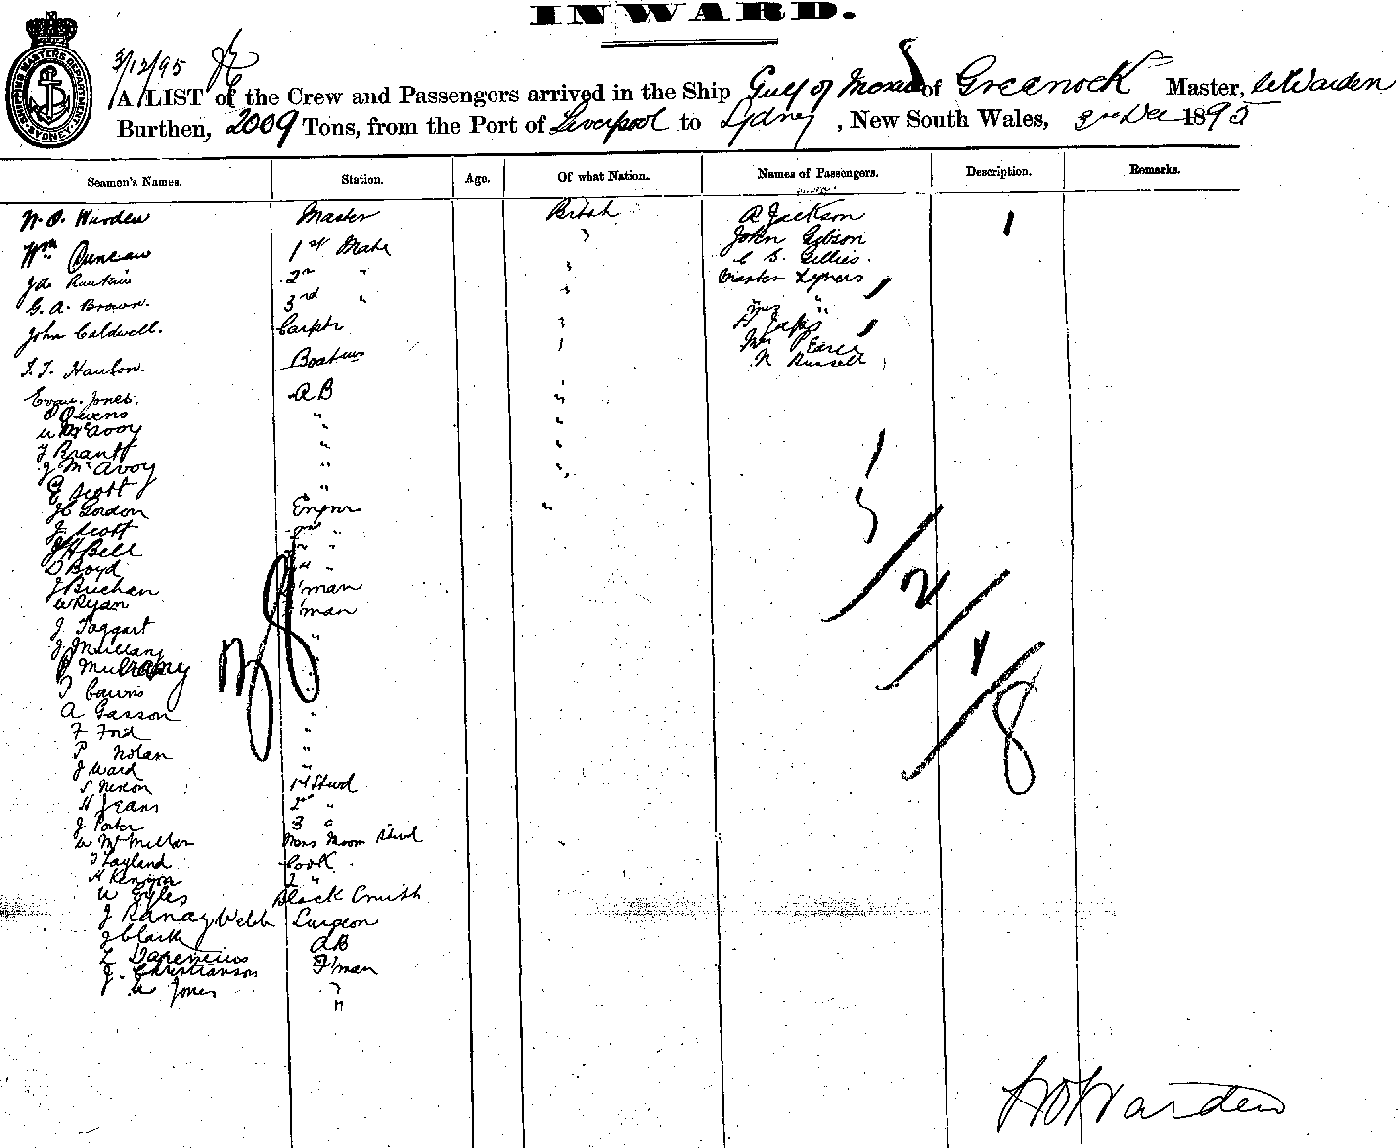 INWARD.
SHIPPING MASTERS DEPARTMENT SYDNEY
3/12/95
A LIST of the Crew and Passengers arrived in the Ship Gulf of of Greenock Master, Warden
Burthen, 2009 Tons, from the Port of Liverpool to Sydney, New South Wales, 3rd Dec 1895
Seamen's Names. Station. Age. Of what Nation. Names of Passengers. Description. Remarks.
W. O. Warden Master British A Jackson 1
Wm Duncan 1st Mate " John Gibson
Jas Rankin 2nd " " C S. Gillies
G. A. Brown. 3rd " "
John Caldwell. Carptr "
Boatswn " Mrs Pearce
N Russell
Evan Jones. AB "
Owens " "
W McAvoy " "
T Brant " "
J McAvoy " "
G Scott "
JC Gordon Engnr "
J Scott 2nd "
JH Bell "
D Boyd "
J Buchan F'man
W Ryan F'man
J Taggart "
J Mullany
P Mullany
T Cairns
A Gasson "
F Ford "
P Nolan "
J Ward "
S Nixon 1st Stwd
H Jeans 2nd "
J Porter 3 "
W McMillan Mess Room Stwd
T Layland Cook
H Kenyon 2 "
W Eyles Black Smith
J Ranay Webb Surgeon
J Clark AB
J. Christianson F'man
W Jones "
38
5
/2
/1
/8
W O Warden